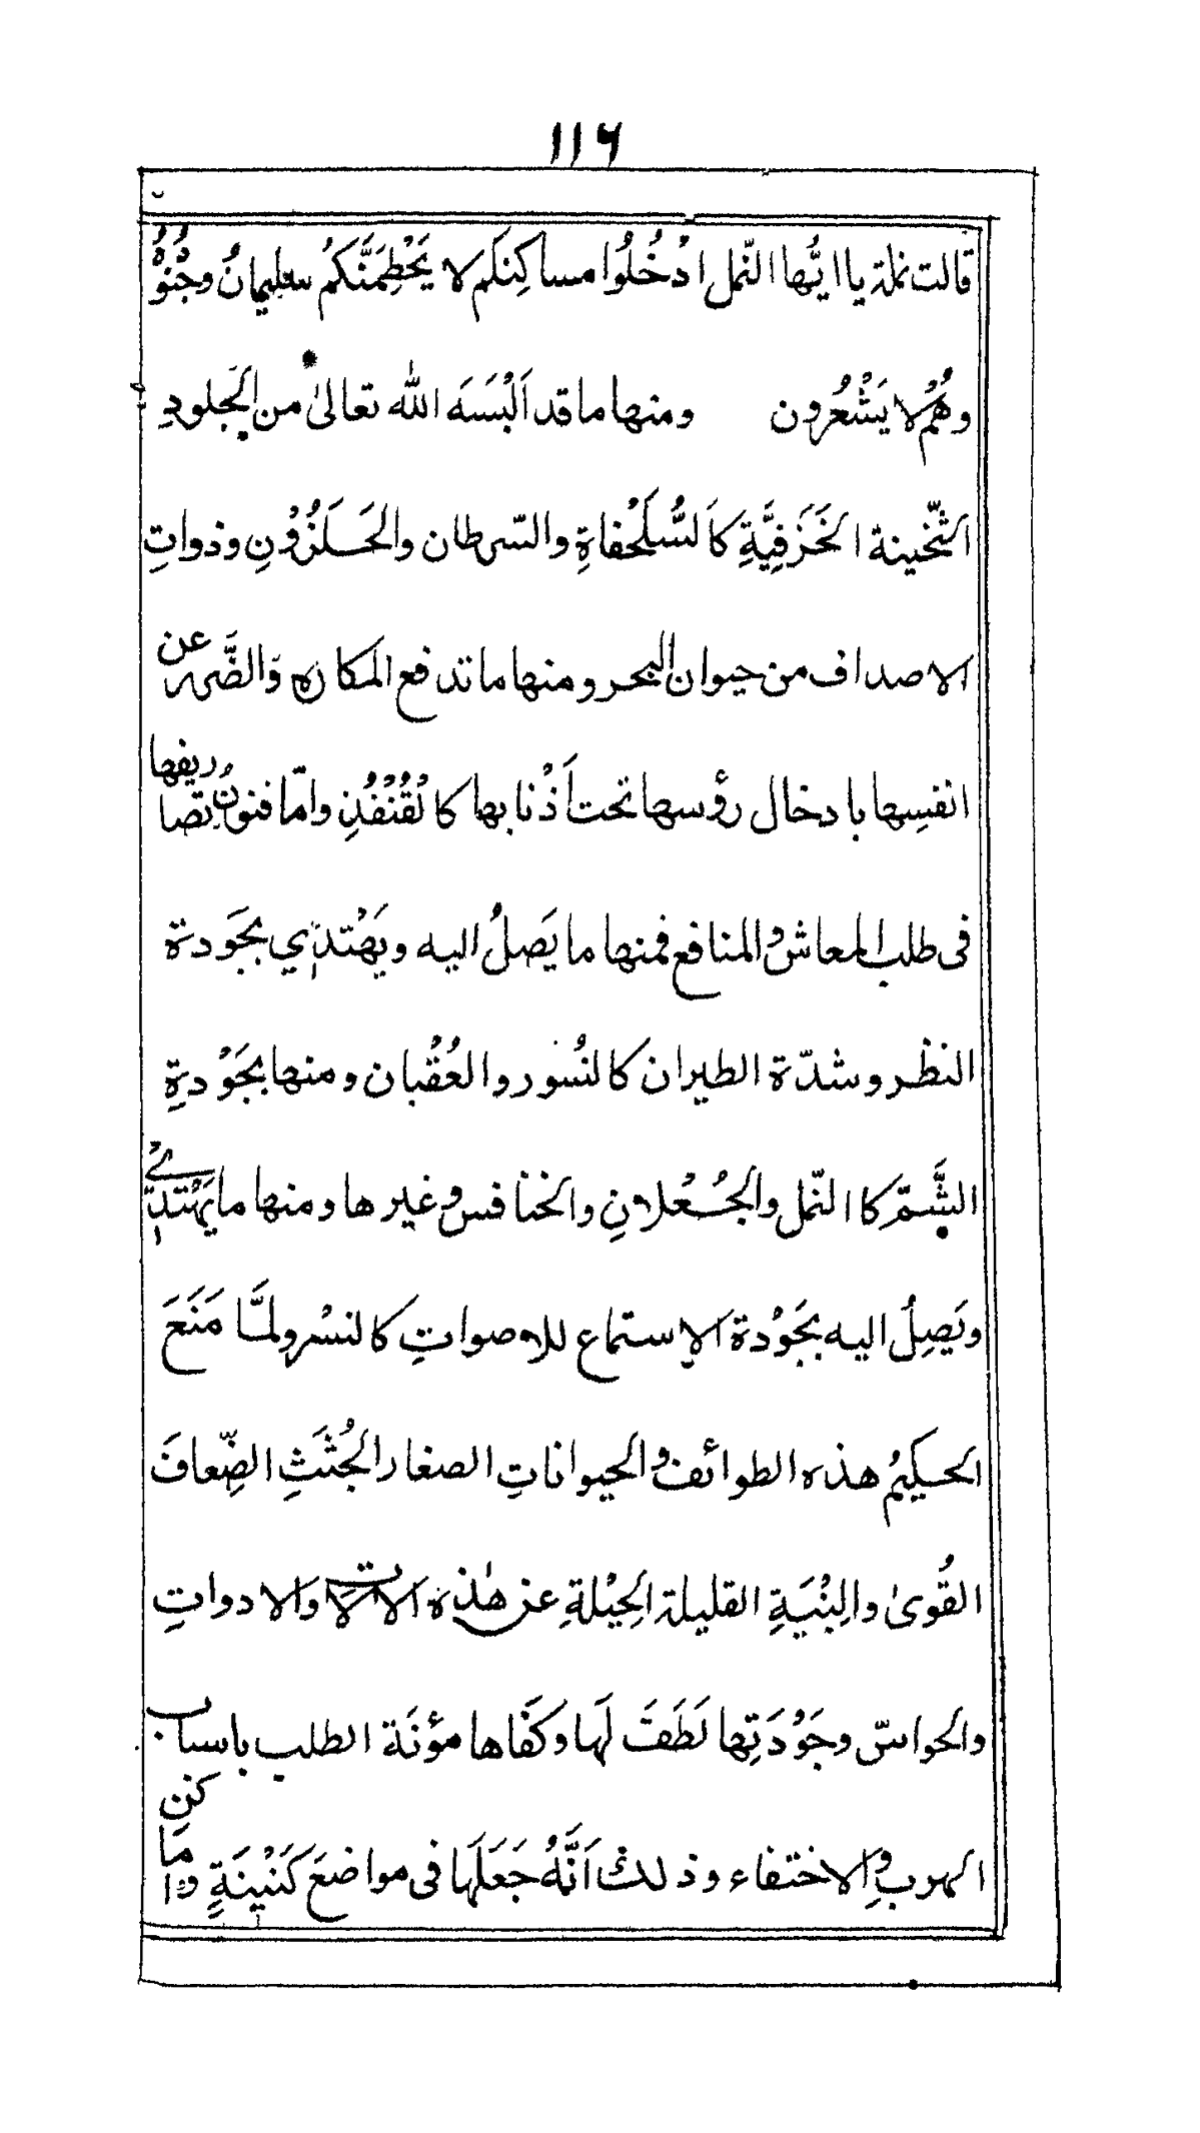 ١١٦
قالت نملة يا ايُّها النّمل ادْخُلُوا مساكِنَكم لا يَحْطِمَنَّكُم سليمانُ وجُنُودُ
وهُمْ لا يَشْعُرُون ومنها ما قد اَلْبَسَه الله تعالىٰ من الجُلودِ
الثّخينة الخَزَفِيَّةِ كاَلسُّلَحْفاةِ والسّرطان والحَلَزُوْنِ وذواتِ
الاصداف من حيوان البحر ومنها ما تدفع المكاره وَالضَّرر عن
انفسِها بادخال رؤسها تحت اَذْنابها كالْقُنْفُذِ وامّا فنونُ تصاريفها
فى طلب المعاش والمنافع فمنها ما يَصَلُ اليه ويَهْتدِي بجَودة
النظر وشدّة الطيران كالنُسُور والعُقْبان ومنها بجَوْدةِ
الشَّمّ كاالنّمل والجُعْلانِ والخنافس وغيرها ومنها ما يَهْتدِے
ويَصِلُ اليه بجَوْدة الاِستماع للاصواتِ كالنسْر ولمَّا مَنَعَ
الحكيمُ هذه الطوائف والحيواناتِ الصغار الجُثَثِ الضِّعافَ
القُوىٰ والبِنْيَةِ القليلة الحِيْلةِ عن هٰذه الالات والادواتِ
والحواسّ وجَوْدَتِها لَطَفَ لَها وكَفَاها مؤنَة الطلب باسباب
الهرب والاِختفاء وذلك اَنَّهُ جَعَلَها فى مواضعَ كَنْيِنَةٍ واَماكن